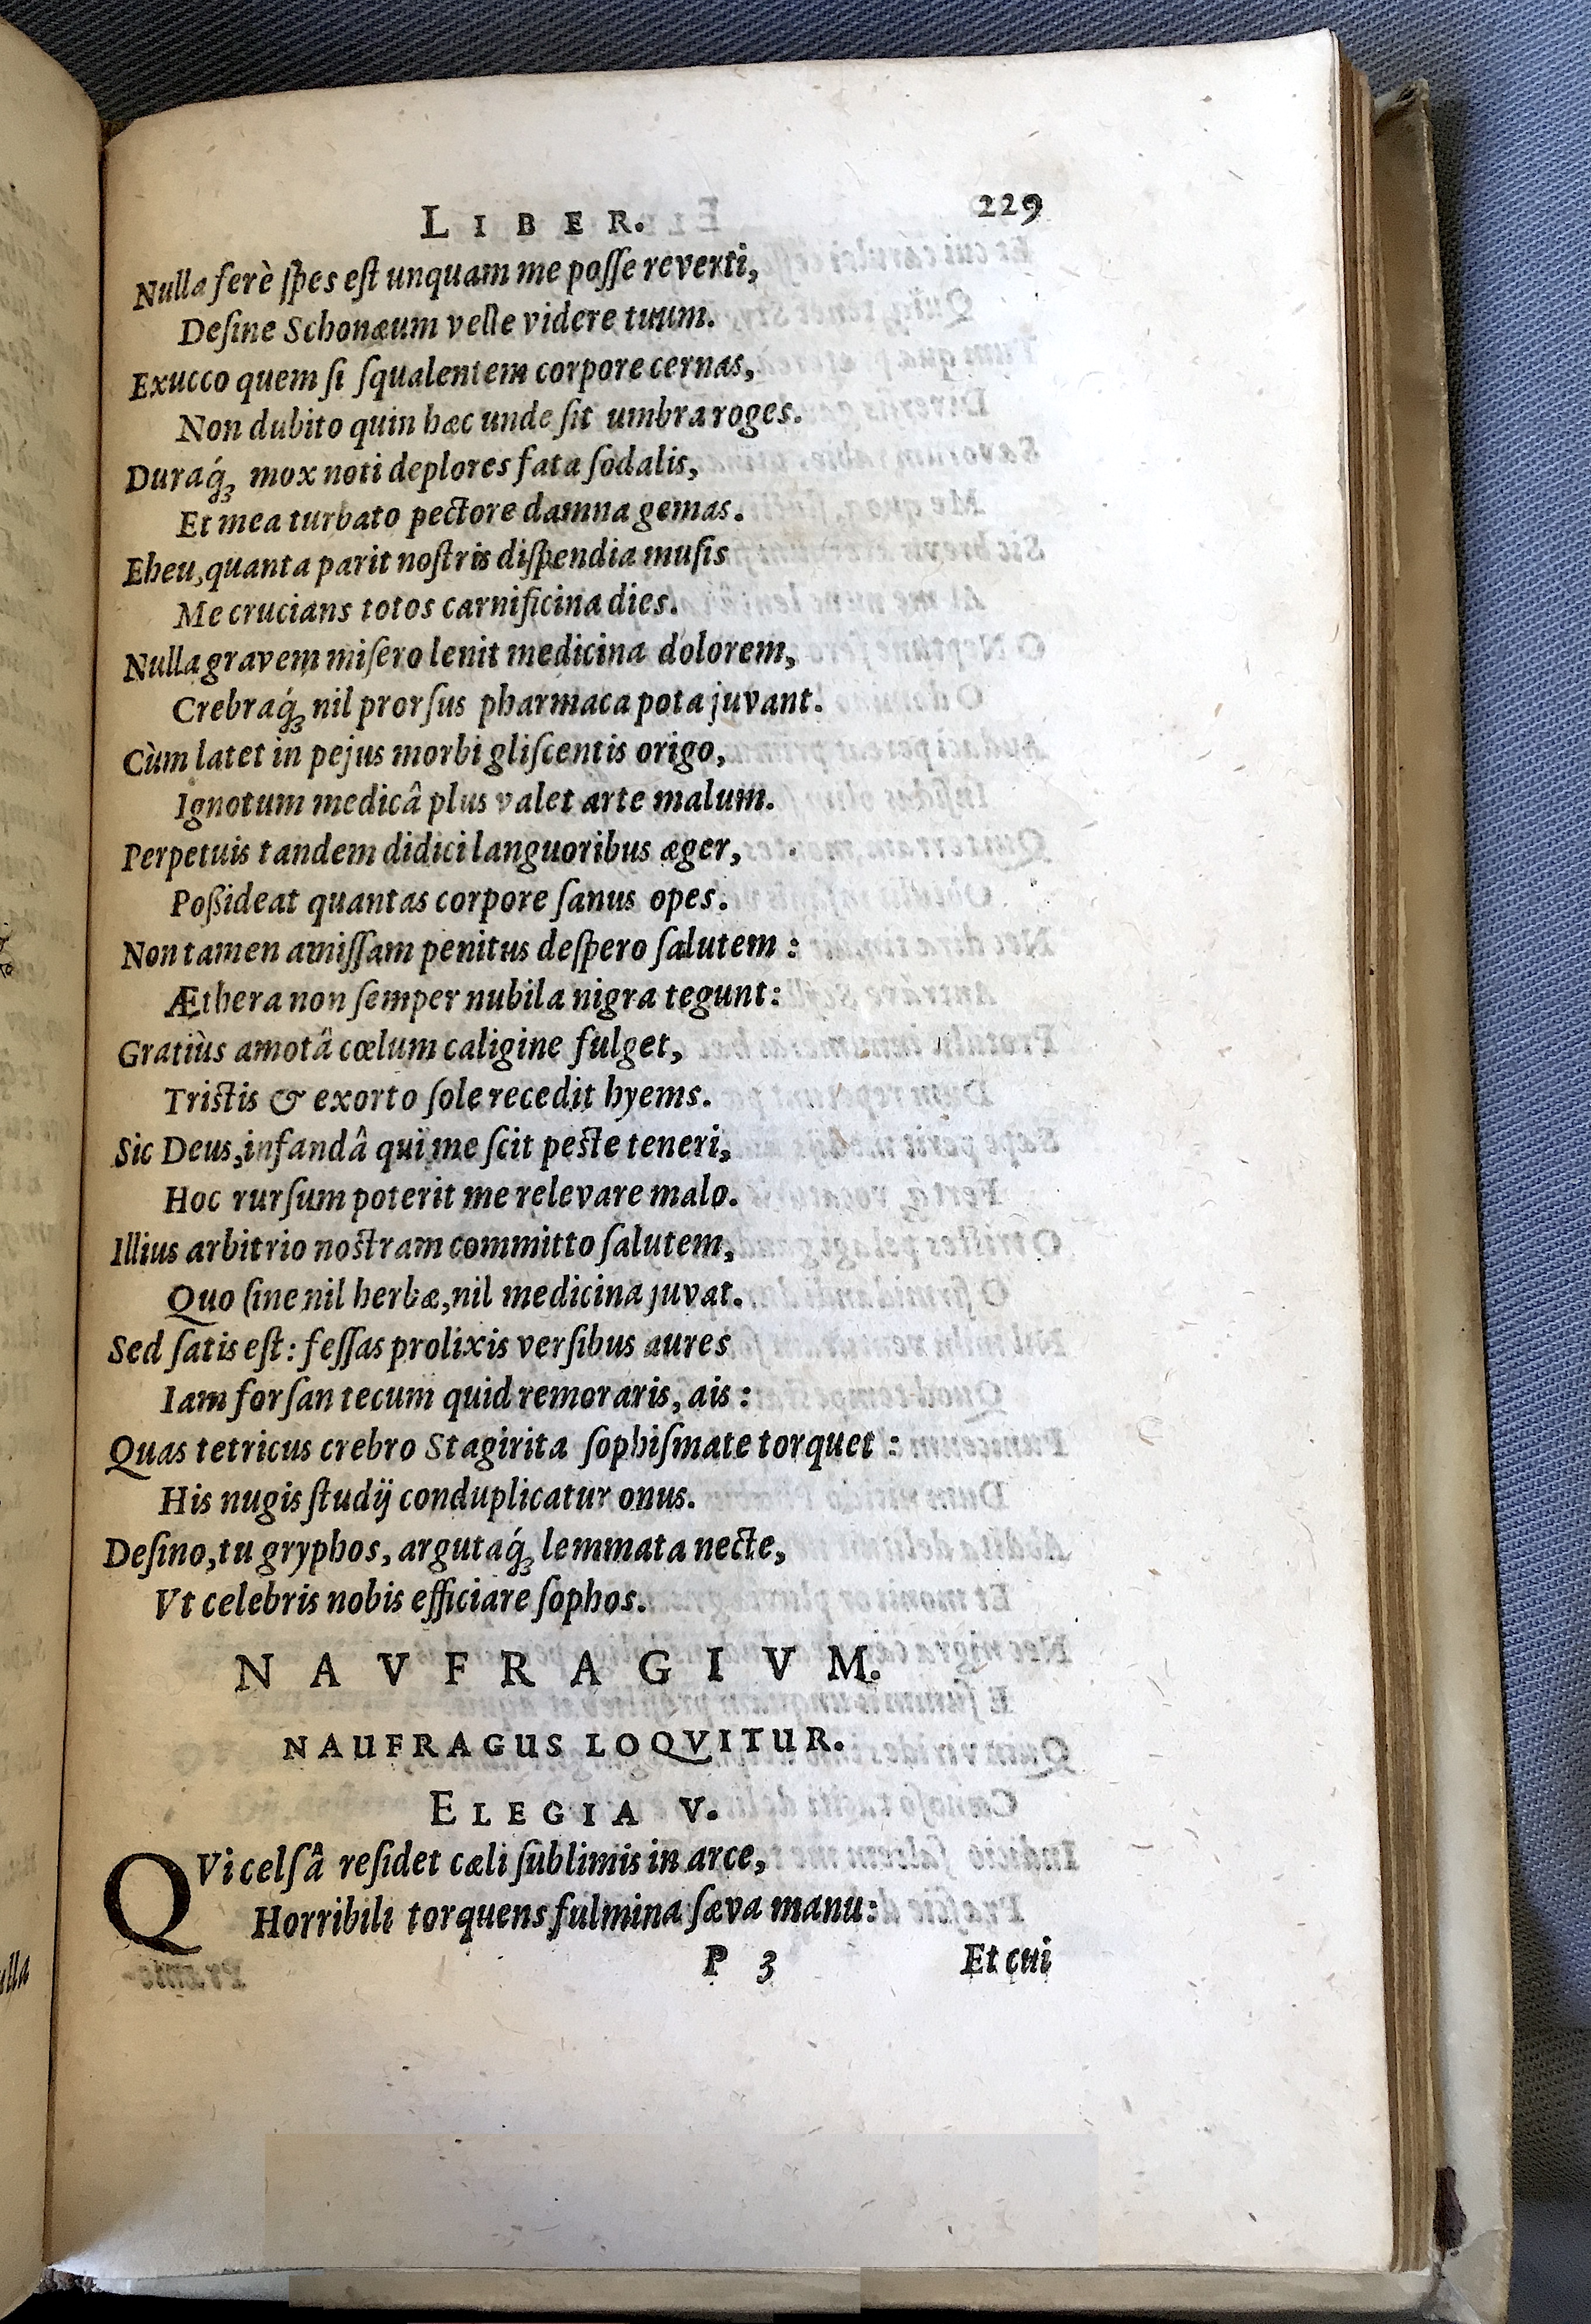 LIBER. 229
Nulla ferè ſpes eſt unquam me poſſe reverti,
Deſine Schonæum velle videre tuum.
Exucco quem ſi ſqualentem corpore cernas,
Non dubito quin hæc unde ſit umbra roges.
Duraq́ꝫ mox noti deplores fata ſodalis,
Et mea turbato pectore damna gemas.
Eheu, quanta parit noſtris diſpendia muſis
Me crucians totos carnificina dies.
Nulla gravem miſero lenit medicina dolorem,
Crebraq́ꝫ nil prorſus pharmaca pota juvant.
Cùm latet in pejus morbi gliſcentis origo,
Ignotum medicâ plus valet arte malum.
Perpetuis tandem didici languoribus æger,
Poßideat quantas corpore ſanus opes.
Non tamen amiſſam penitus deſpero ſalutem :
Æthera non ſemper nubila nigra tegunt:
Gratiùs amotâ cœlum caligine fulget,
Triſtis & exorto ſole recedit hyems.
Sic Deus, infandâ qui me ſcit peſte teneri,
Hoc rurſum poterit me relevare malo.
Illius arbitrio noſtram committo ſalutem,
Quo ſine nil herbæ, nil medicina juvat.
Sed ſatis eſt: feſſas prolixis verſibus aures
Iam forſan tecum quid remoraris, ais :
Quas tetricus crebro Stagirita ſophiſmate torquet :
His nugis ſtudij conduplicatur onus.
Deſino, tu gryphos, argutaq́ꝫ lemmata necte,
Vt celebris nobis efficiare ſophos.
NAVFRAGIVM.
NAUFRAGUS LOQVITUR.
ELEGIA V.
QVi celſâ reſidet cæli ſublimis in arce,
Horribili torquens fulmina ſæva manu:
P 3 Et cui
ulla